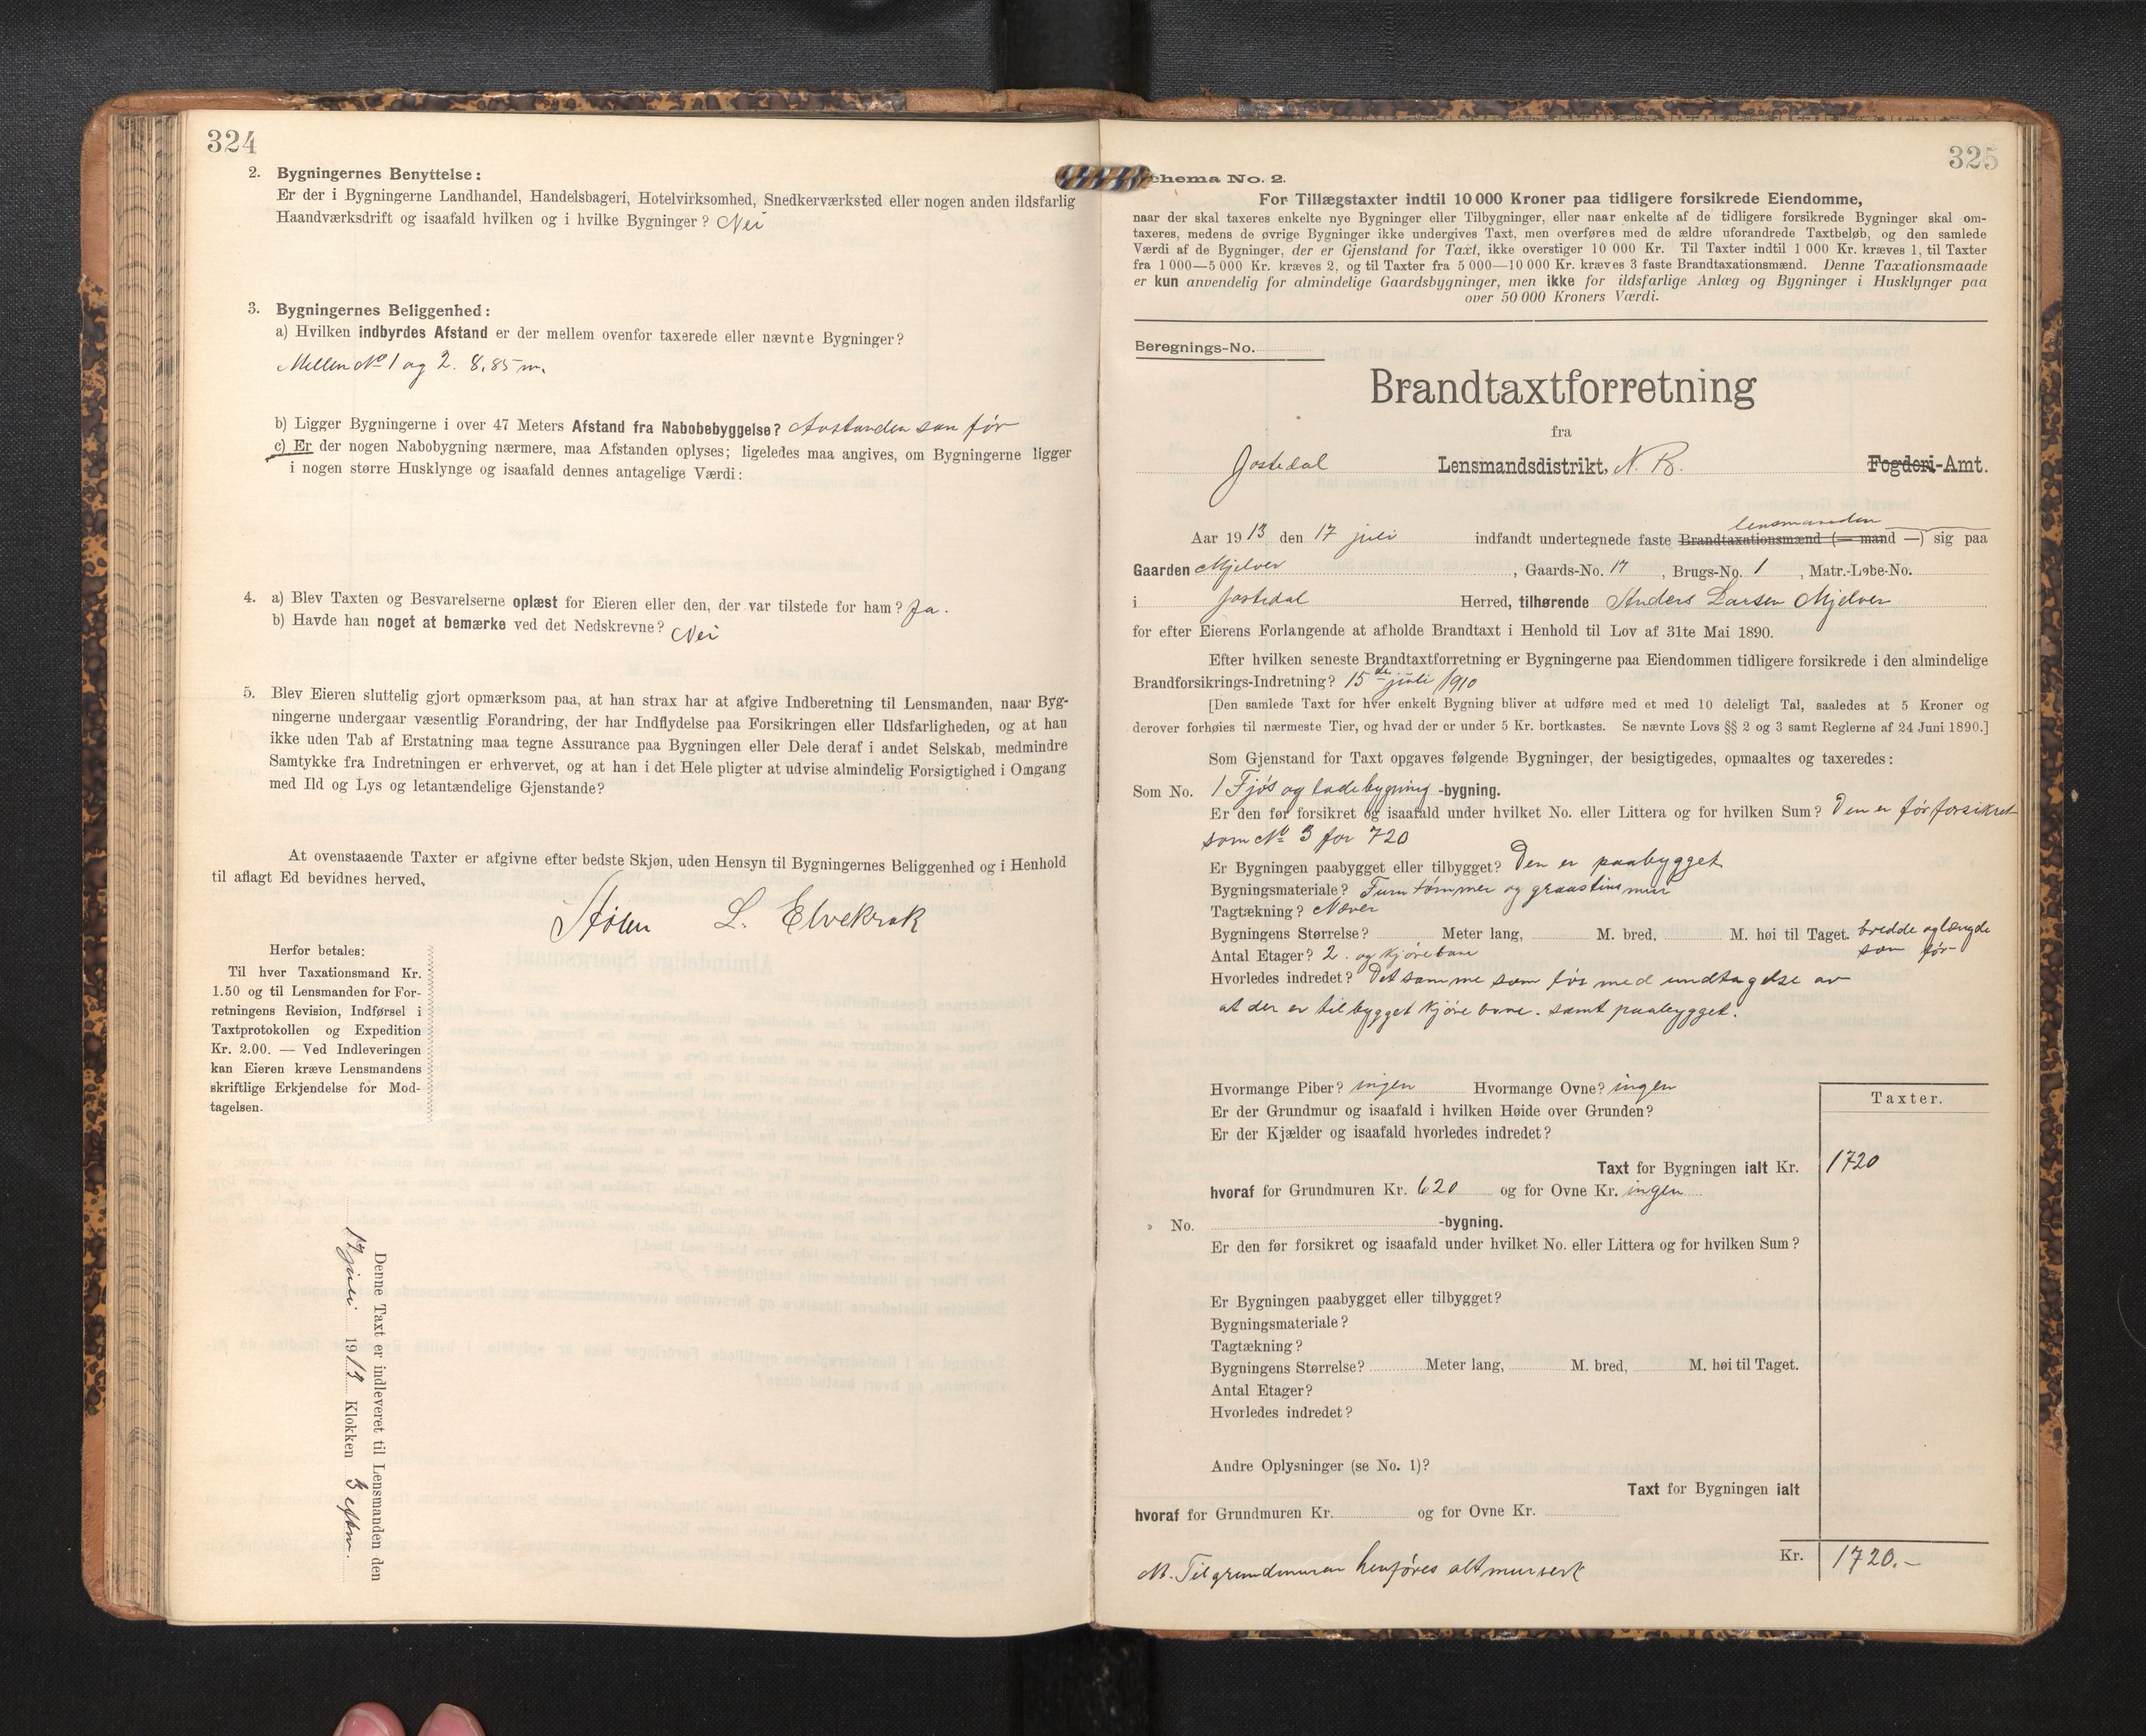 324
2. Bygningernes Benyttelse:
Er der i Bygningerne Landhandel, Handelsbageri, Hotelvirksomhed, Snedkerværksted eller nogen anden ildsfarlig
Haandværksdrift og isaafald hvilken og i hvilke Bygninger? Nei
3. Bygningernes Beliggenhed:
a) Hvilken indbyrdes Afstand er der mellem ovenfor taxerede eller nævnte Bygninger?
Mellem No 1 og 2. 8,85 m.
b) Ligger Bygningerne i over 47 Meters Afstand fra Nabobebyggelse? Avstanden som før
c) Er der nogen Nabobygning nærmere, maa Afstanden oplyses; ligeledes maa angives, om Bygningerne ligger
i nogen større Husklynge og isaafald dennes antagelige Værdi:
4. a) Blev Taxten og Besvarelserne oplæst for Eieren eller den, der var tilstede for ham? Ja.
b) Havde han noget at bemærke ved det Nedskrevne? Nei
5. Blev Eieren sluttelig gjort opmærksom paa, at han strax har at afgive Indberetning til Lensmanden, naar Byg-
ningerne undergaar væsentlig Forandring, der har Indflydelse paa Forsikringen eller Ildsfarligheden, og at han
ikke uden Tab af Erstatning maa tegne Assurance paa Bygningen eller Dele deraf i andet Selskab, medmindre
Samtykke fra Indretningen er erhvervet, og at han i det Hele pligter at udvise almindelig Forsigtighed i Omgang
med Ild og Lys og letantændelige Gjenstande?
At ovenstaaende Taxter er afgivne efter bedste Skjøn, uden Hensyn til Bygningernes Beliggenhed og i Henhold
til aflagt Ed bevidnes herved,
Stølen L. Elvekrok
Herfor betales:
Til hver Taxationsmand Kr.
1.50 og til Lensmanden for For-
retningens Revision, Indførsel i
Taxtprotokollen og Expedition
Kr. 2.00. — Ved Indleveringen
kan Eieren kræve Lensmandens
skriftlige Erkjendelse for Mod-
tagelsen.
Denne Taxt er indleveret til Lensmanden den
17 juli 1913 Klokken 3 eftm.
325
chema No. 2.
For Tillægstaxter indtil 10 000 Kroner paa tidligere forsikrede Eiendomme,
naar der skal taxeres enkelte nye Bygninger eller Tilbygninger, eller naar enkelte af de tidligere forsikrede Bygninger skal om-
taxeres, medens de øvrige Bygninger ikke undergives Taxt, men overføres med de ældre uforandrede Taxtbeløb, og den samlede
Værdi af de Bygninger, der er Gjenstand for Taxt, ikke overstiger 10 000 Kr. Til Taxter indtil 1 000 Kr. kræves 1, til Taxter
fra 1 000—5 000 Kr. kræves 2, og til Taxter fra 5 000—10 000 Kr. kræves 3 faste Brandtaxationsmænd. Denne Taxationsmaade
er kun anvendelig for almindelige Gaardsbygninger, men ikke for ildsfarlige Anlæg og Bygninger i Husklynger paa
over 50 000 Kroners Værdi.
Beregnings-No.
Brandtaxtforretning
fra
Jostedal Lensmandsdistrikt, N. B. Fogderi-Amt.
lensmanden
Aar 1913 den 17 juli indfandt undertegnede faste Brandtaxationsmænd (— mand —) sig paa
Gaarden Mjelver, Gaards-No. 17, Brugs-No. 1, Matr.-Løbe-No.
i Jostedal Herred, tilhørende Anders Larsen Mjelver
for efter Eierens Forlangende at afholde Brandtaxt i Henhold til Lov af 31te Mai 1890.
Efter hvilken seneste Brandtaxtforretning er Bygningerne paa Eiendommen tidligere forsikrede i den almindelige
Brandforsikrings-Indretning? 15de juli 1910
[Den samlede Taxt for hver enkelt Bygning bliver at udføre med et med 10 deleligt Tal, saaledes at 5 Kroner og
derover forhøies til nærmeste Tier, og hvad der er under 5 Kr. bortkastes. Se nævnte Lovs §§ 2 og 3 samt Reglerne af 24 Juni 1890.]
Som Gjenstand for Taxt opgaves følgende Bygninger, der besigtigedes, opmaaltes og taxeredes:
Som No. 1 Fjøs og ladebygning -bygning.
Er den før forsikret og isaafald under hvilket No. eller Littera og for hvilken Sum? Den er før forsikret
som No 3 for 720
Er Bygningen paabygget eller tilbygget? Den er paabygget
Bygningsmateriale? Furutømmer og graastins mur
Tagtækning? Næver
Bygningens Størrelse? Meter lang, M. bred, M. høi til Taget. bredde og længde
som før
Antal Etager? 2. og kjørebane
Hvorledes indredet? Det samme som før med undtagelse av
at der er tilbygget kjøre bane. samt paabygget.
Hvormange Piber? ingen Hvormange Ovne? ingen
Er der Grundmur og isaafald i hvilken Høide over Grunden?
Er der Kjælder og isaafald hvorledes indredet?
Taxter.
Taxt for Bygningen ialt Kr. 1720
hvoraf for Grundmuren Kr. 620 og for Ovne Kr. ingen
» No. -bygning.
Er den før forsikret og isaafald under hvilket No. eller Littera og for hvilken Sum?
Er Bygningen paabygget eller tilbygget?
Bygningsmateriale?
Tagtækning?
Bygningens Størrelse? Meter lang, M. bred, M. høi til Taget.
Antal Etager?
Hvorledes indredet?
Andre Oplysninger (se No. 1)?
Taxt for Bygningen ialt
hvoraf for Grundmuren Kr. og for Ovne Kr.
Kr. 1720.-
M. Til grundmuren henføres alt murverk